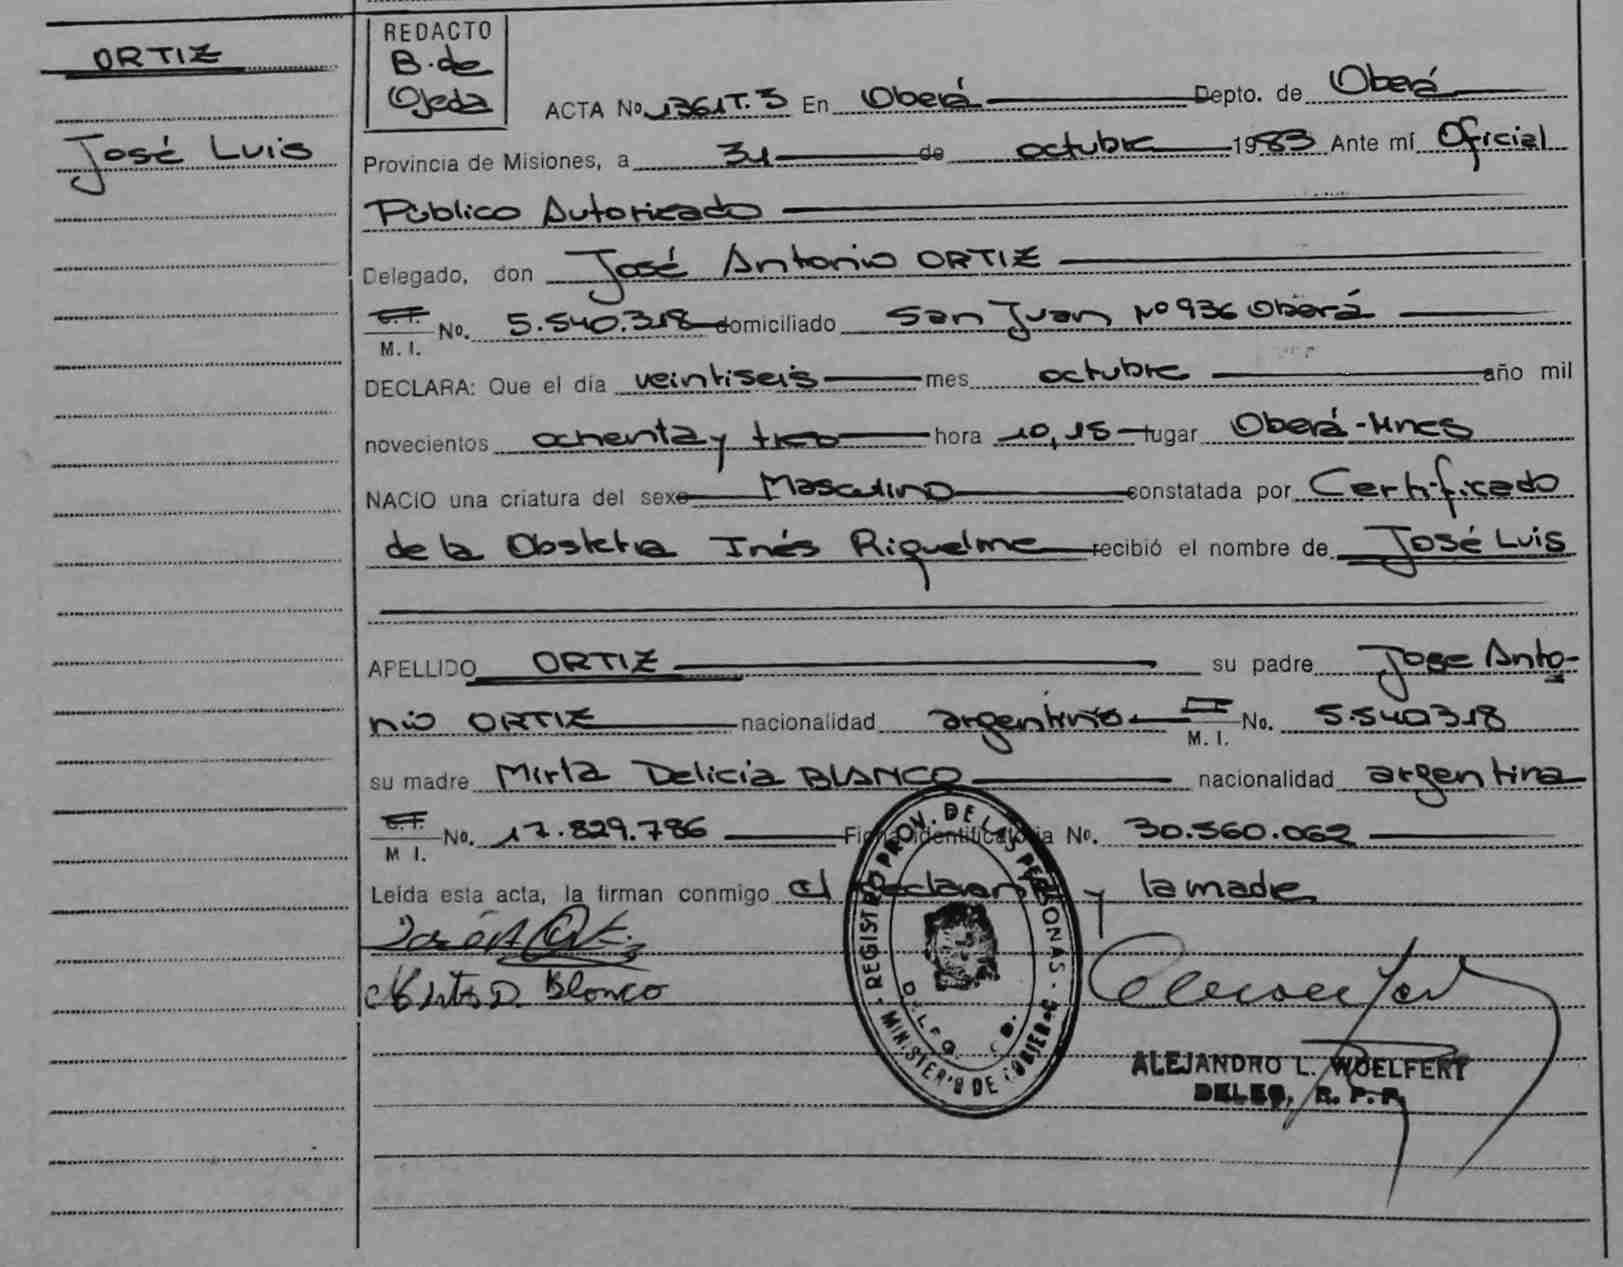 ORTIZ
José Luis
REDACTO
B. de
Ojeda
ACTA No. 1361T.3 En Oberá Depto. de Oberá
Provincia de Misiones, a 31 de octubre 1983 Ante mí Oficial
Público Autorizado
Delegado, don José Antonio ORTIZ
C.I. M. I. No. 5.540.318 domiciliado San Juan Nº 936 Oberá
DECLARA: Que el día veintiseis mes octubre año mil
novecientos ochenta y tres hora 10,15 lugar Oberá-Mnes
NACIO una criatura del sexo Masculino constatada por Certificado
de la Obstetra Inés Riquelme recibió el nombre de José Luis
APELLIDO ORTIZ su padre Jose Anto-
nio ORTIZ nacionalidad argentino M. I. No. 5.540.318
su madre Mirta Delicia BLANCO nacionalidad argentina
C.I. M I. No. 17.829.786 Ficha identificatoria No. 30.560.062
Leída esta acta, la firman conmigo el declarante y la madre
Mirta D. Blanco
REGISTRO PROV. DE LAS PERSONAS
MINISTERIO DE GOBIERNO
ALEJANDRO L. WOELFERT
DELEG. R. P. P.